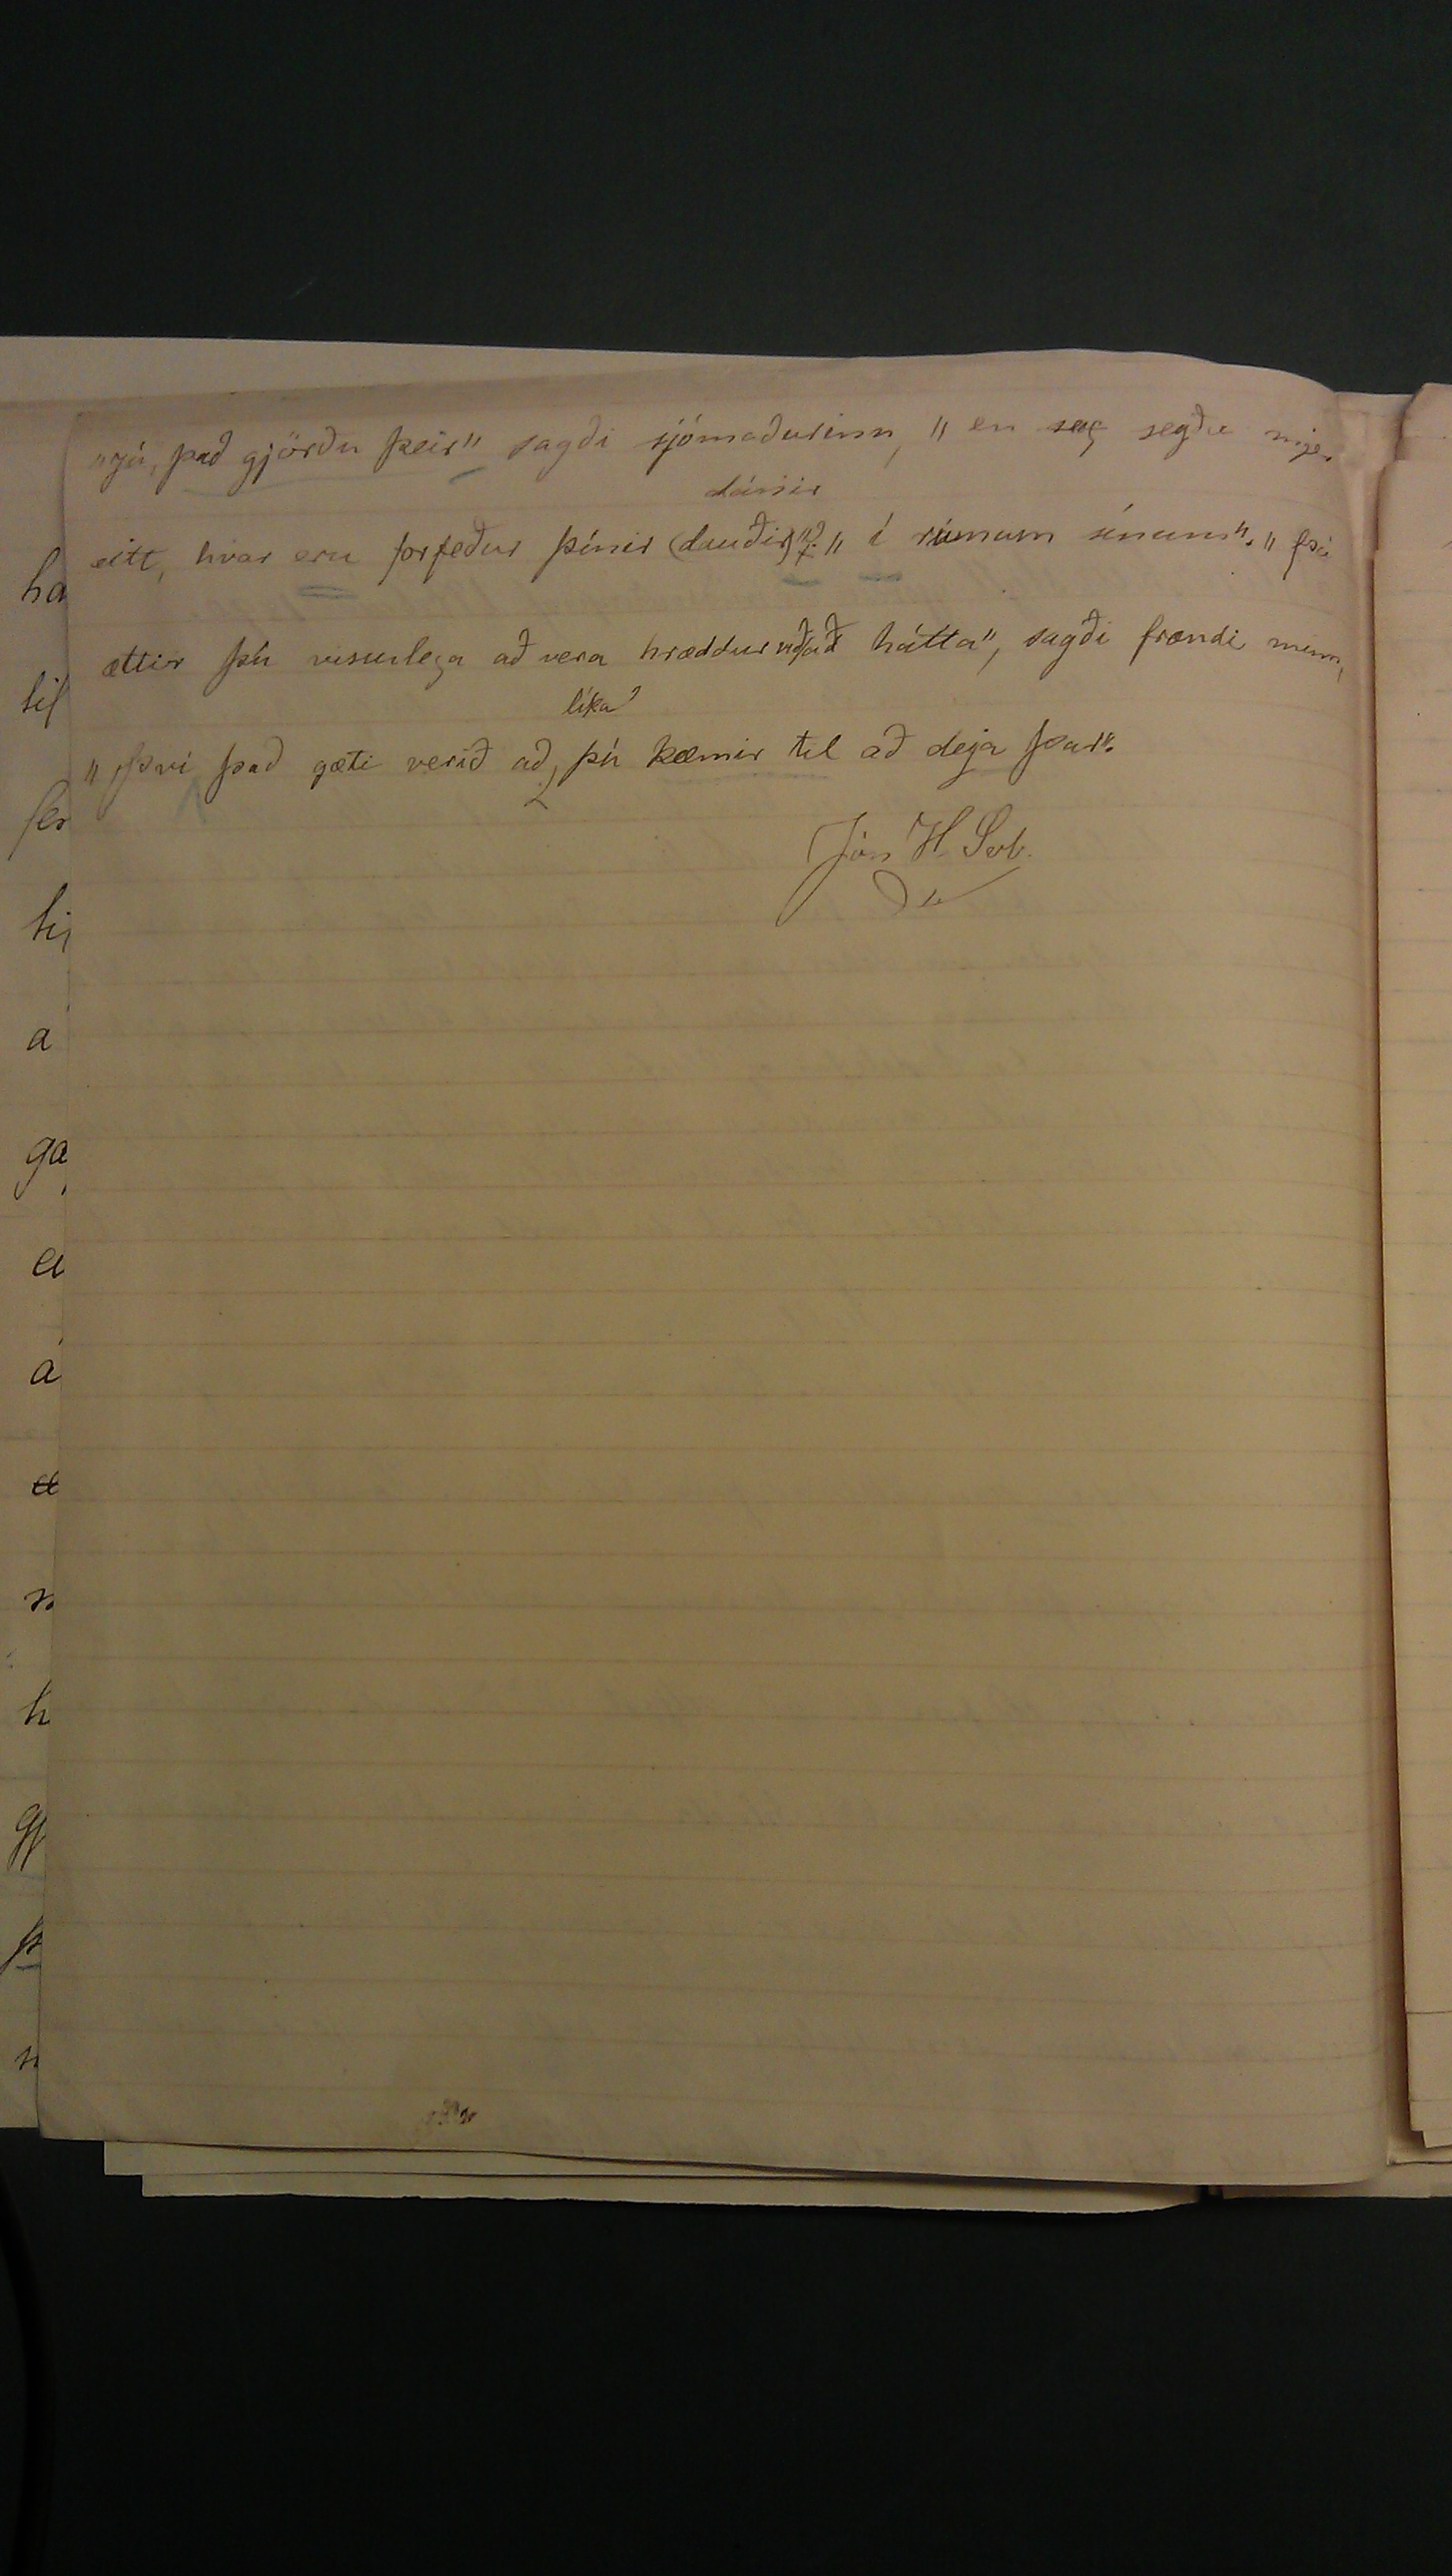 „já, það gjörðu þeir" sagði sjómaðurinn, „en seg segðu mjer
dánir
eitt, hvar eru forfeður þínir (dauðir)"? „í rúmum sínum". „þá
ættir þú visurlega að vera hræddur við að hátta", sagði frændi minn,
líka
„því það gæti verið að, þú kæmir til að deja þar".
Jón H. Svb.
ha
til
fer
a
ga
a
á
h